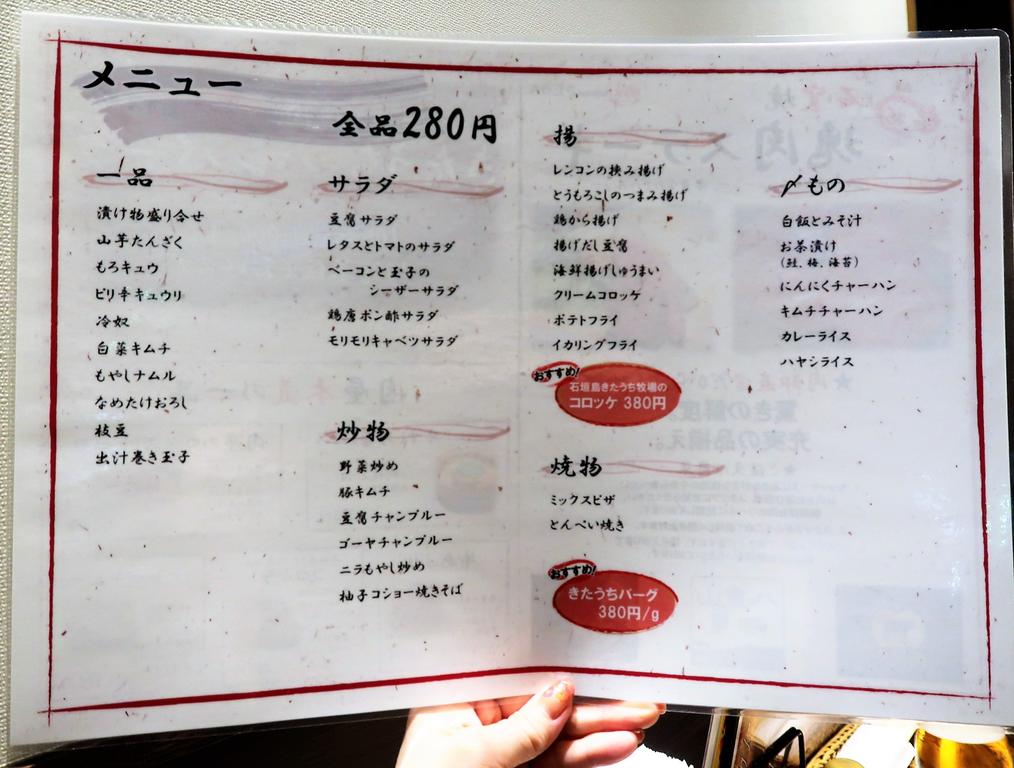 メニュー
全品280円
一品
漬け物盛り合せ
山芋たんざく
もろキュウ
ピリ辛キュウリ
冷奴
白菜キムチ
もやしナムル
なめたけおろし
枝豆
出汁巻き玉子
サラダ
豆腐サラダ
レタスとトマトのサラダ
ベーコンと玉子の
シーザーサラダ
鶏唐ポン酢サラダ
モリモリキャベツサラダ
炒物
野菜炒め
豚キムチ
豆腐チャンプルー
ゴーヤチャンプルー
ニラもやし炒め
柚子コショー焼きそば
揚
レンコンの挟み揚げ
とうもろこしのつまみ揚げ
鶏から揚げ
揚げだし豆腐
海鮮揚げしゅうまい
クリームコロッケ
ポテトフライ
イカリングフライ
おすすめ!
石垣島きたうち牧場の
コロッケ 380円
焼物
ミックスピザ
とんぺい焼き
おすすめ!
きたうちバーグ
380円/g
〆もの
白飯とみそ汁
お茶漬け
(鮭、梅、海苔)
にんにくチャーハン
キムチチャーハン
カレーライス
ハヤシライス